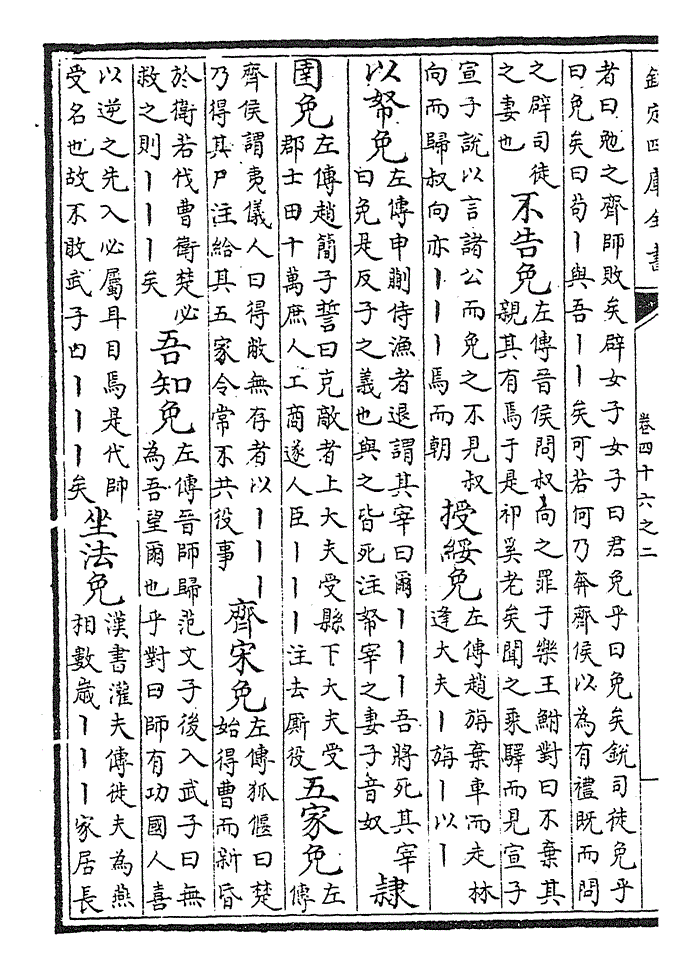 欽定四庫全書
卷四十六之二
者曰勉之齊師敗矣辟女子女子曰君免乎曰免矣銳司徒免乎
曰免矣曰苟丨與吾丨丨矣可若何乃奔齊侯以為有禮既而問
之辟司徒
之妻也
不告免
左傳晉侯問叔向之罪于樂王鮒對曰不棄其
親其有焉于是祁奚老矣聞之乘驛而見宣子
宣子說以言諸公而免之不見叔
向而歸叔向亦丨丨丨焉而朝
授綏免
左傳趙旃棄車而走林
逢大夫丨旃丨以丨
以帑免
左傳申蒯侍漁者退謂其宰曰爾丨丨丨吾將死其宰
曰免是反子之義也與之皆死注帑宰之妻子音奴
隷
圉免
左傳趙簡子誓曰克敵者上大夫受縣下大夫受
郡士田十萬庶人工商遂人臣丨丨丨注去厮役
五家免
左
傳
齊侯謂夷儀人曰得敝無存者以丨丨丨
乃得其尸注給其五家令常不共役事
齊宋免
左傳狐偃曰楚
始得曹而新昏
於衛若伐曹衛楚必
救之則丨丨丨矣
吾知免
左傳晉師歸范文子後入武子曰無
為吾望爾也乎對曰師有功國人喜
以逆之先入必屬耳目焉是代帥
受名也故不敢武子曰丨丨丨矣
坐法免
漢書灌夫傳徙夫為燕
相數歲丨丨丨家居長